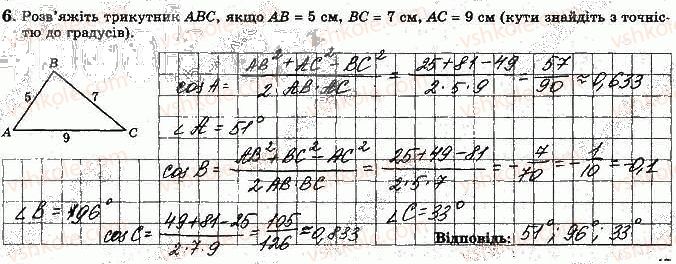 6. Розв'яжіть трикутник ABC, якщо AB = 5 см, BC = 7 см, AC = 9 см (кути знайдіть з точніс-
тю до градусів).
B
5
7
A
9
C
cos A = (AB² + AC² - BC²) / (2 AB·AC) = (25+81-49) / (2·5·9) = 57/90 ≈ 0,633
∠A = 51°
cos B = (AB² + BC² - AC²) / (2 AB·BC) = (25+49-81) / (2·5·7) = -7/70 = -1/10 = -0,1
∠B = 96°
cos C = (49+81-25) / (2·7·9) = 105/126 = 0,833
∠C = 33°
Відповідь: 51°; 96°; 33°